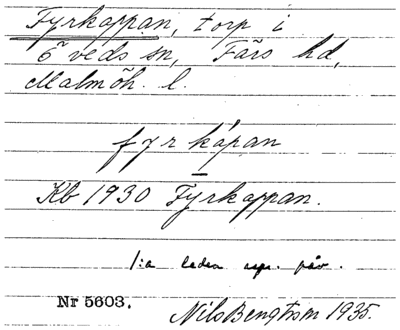 Fyrkappan, torp i
Öveds sn, Färs hd,
Malmöh. l.
fyrkápan
Kb 1930 Fyrkappan.
1:a leden rspr. påv.
Nr 5603. Nils Bengtsson 1935.